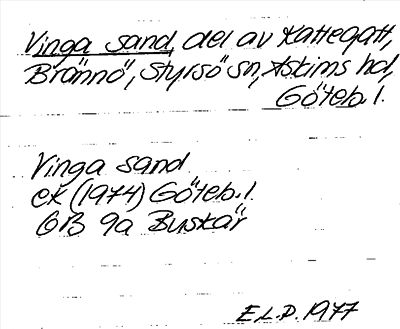 Vinga sand, del av Kattegatt,
Brännö, Styrsö sn, Askims hd,
Göteb. l.
Vinga sand
ek (1974) Göteb. l.
GB 9a Buskär
E.L.P. 1977